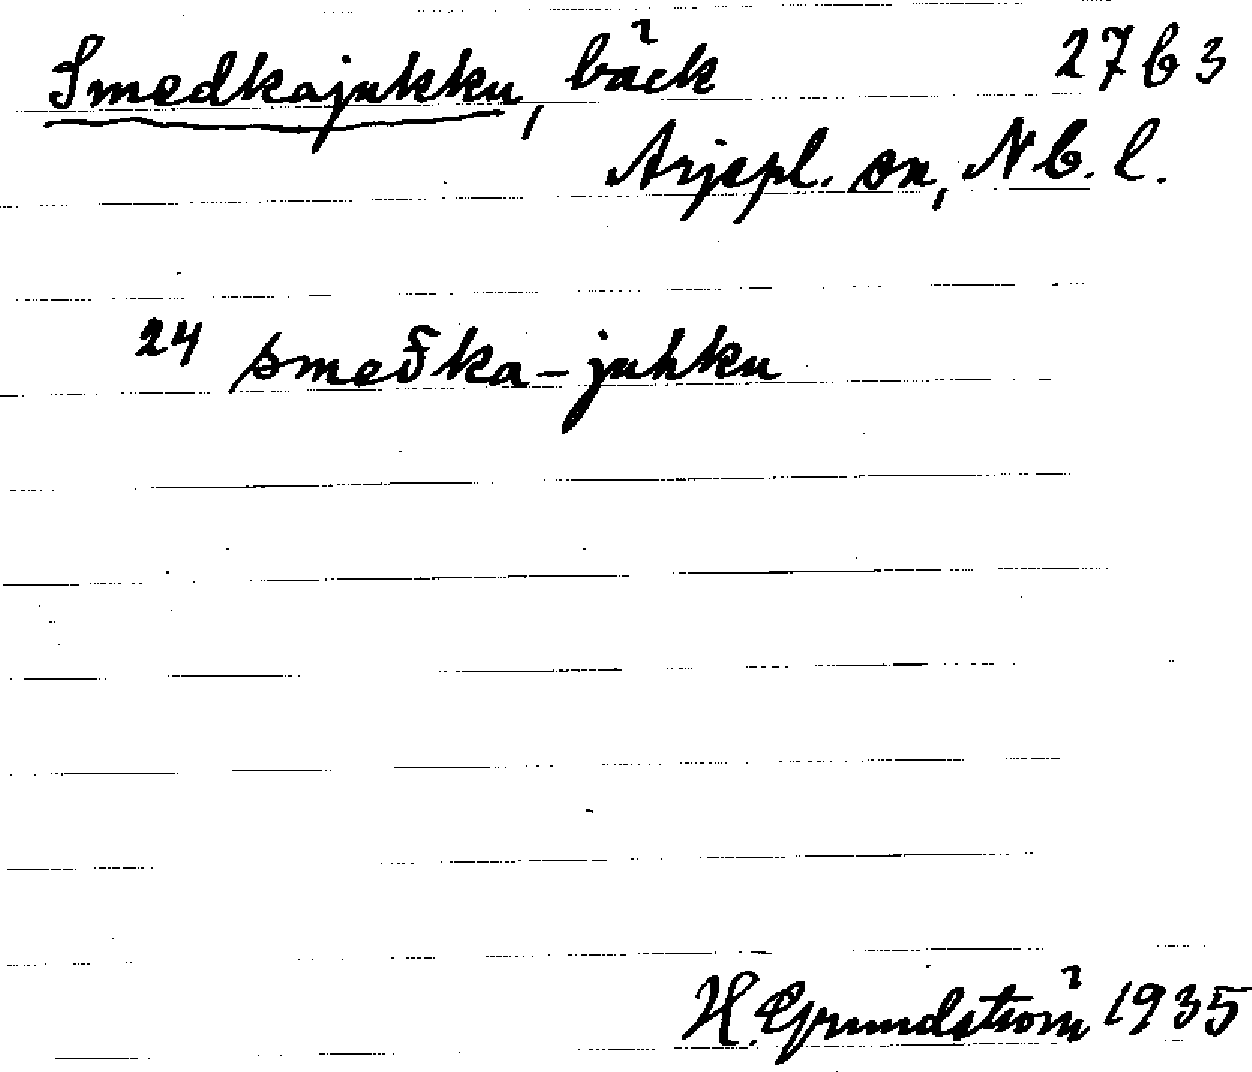 Smedkajukku, bäck 27 b 3
Arjepl. sn, Nb. l.
24 smeδka-juhku
H. Grundström 1935